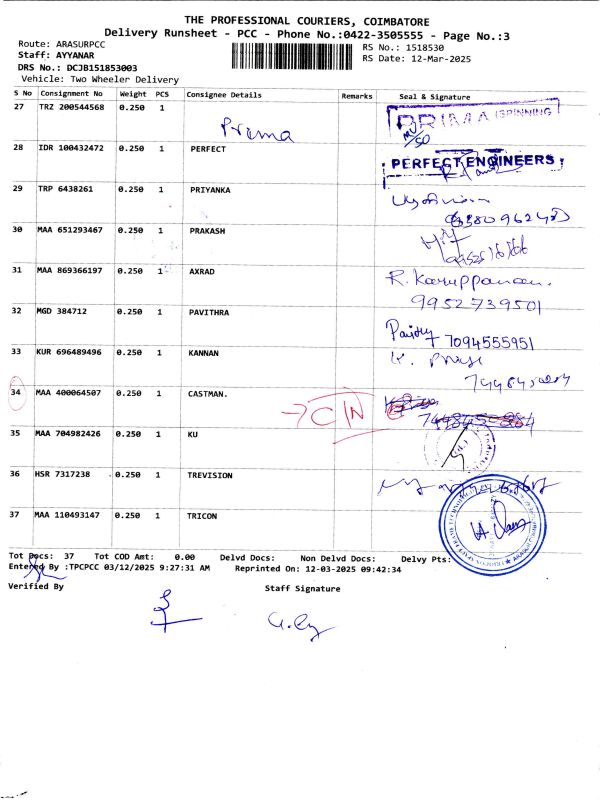 THE PROFESSIONAL COURIERS, COIMBATORE
Delivery Runsheet - PCC - Phone No.:0422-3505555 - Page No.:3
Route: ARASURPCC
RS No.: 1518530
Staff: AYYANAR
RS Date: 12-Mar-2025
DRS No.: DCJB151853003
Vehicle: Two Wheeler Delivery
S No Consignment No Weight PCS Consignee Details Remarks Seal & Signature
27 TRZ 200544568 0.250 1 Prima PRIMA SPINNING
28 IDR 100432472 0.250 1 PERFECT PERFECT ENGINEERS
29 TRP 6438261 0.250 1 PRIYANKA
30 MAA 651293467 0.250 1 PRAKASH
31 MAA 869366197 0.250 1 AXRAD R. Karuppanan.
9952739501
32 MGD 384712 0.250 1 PAVITHRA 7094555951
33 KUR 696489496 0.250 1 KANNAN
34 MAA 400064507 0.250 1 CASTMAN. → C/N
35 MAA 704982426 0.250 1 KU
36 HSR 7317238 0.250 1 TREVISION
37 MAA 110493147 0.250 1 TRICON
Tot Docs: 37 Tot COD Amt: 0.00 Delvd Docs: Non Delvd Docs: Delvy Pts:
Entered By :TPCPCC 03/12/2025 9:27:31 AM Reprinted On: 12-03-2025 09:42:34
Verified By Staff Signature